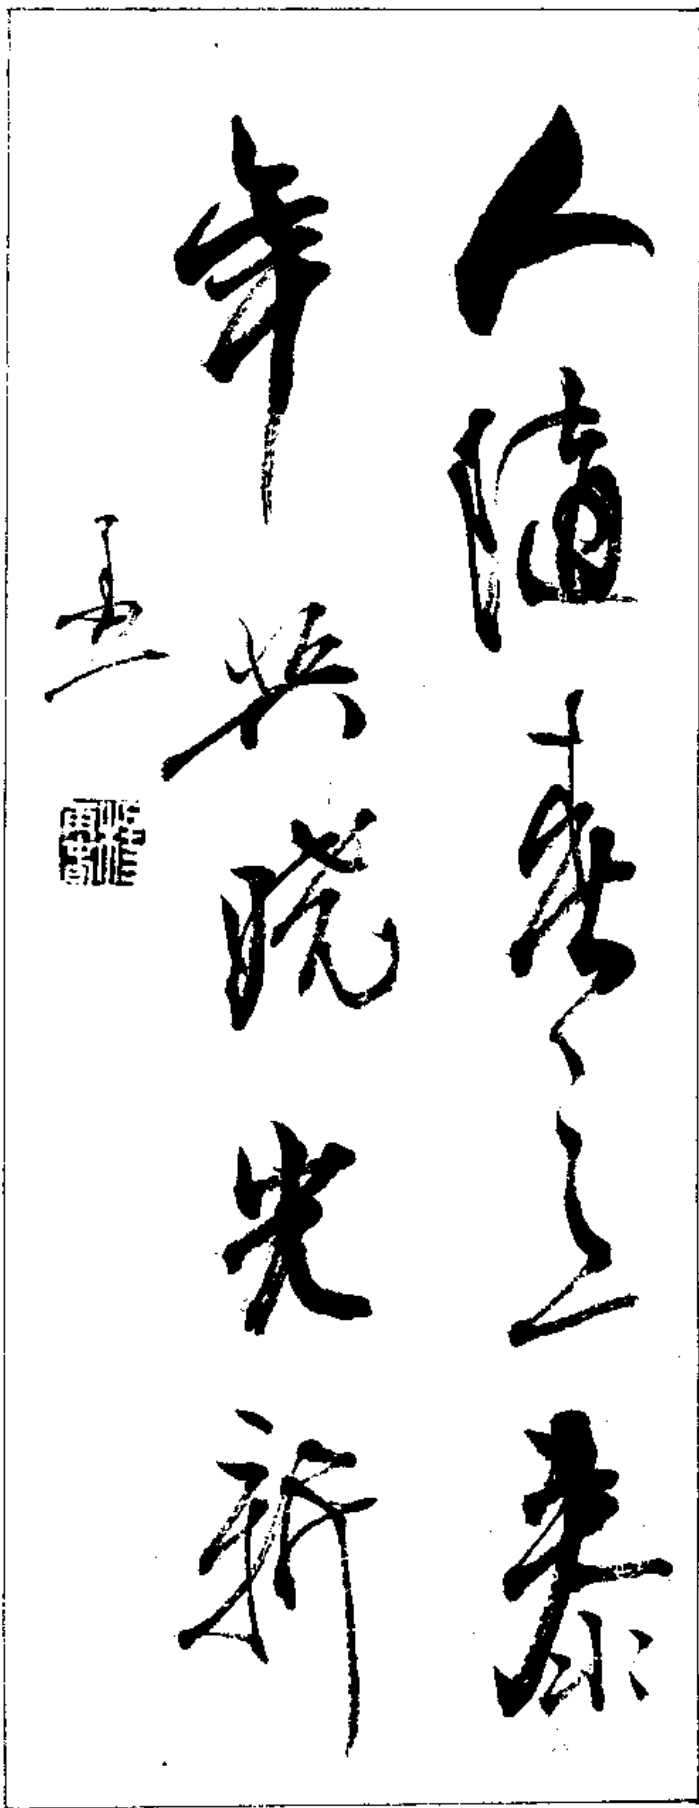 人随春意泰
年共晓光新